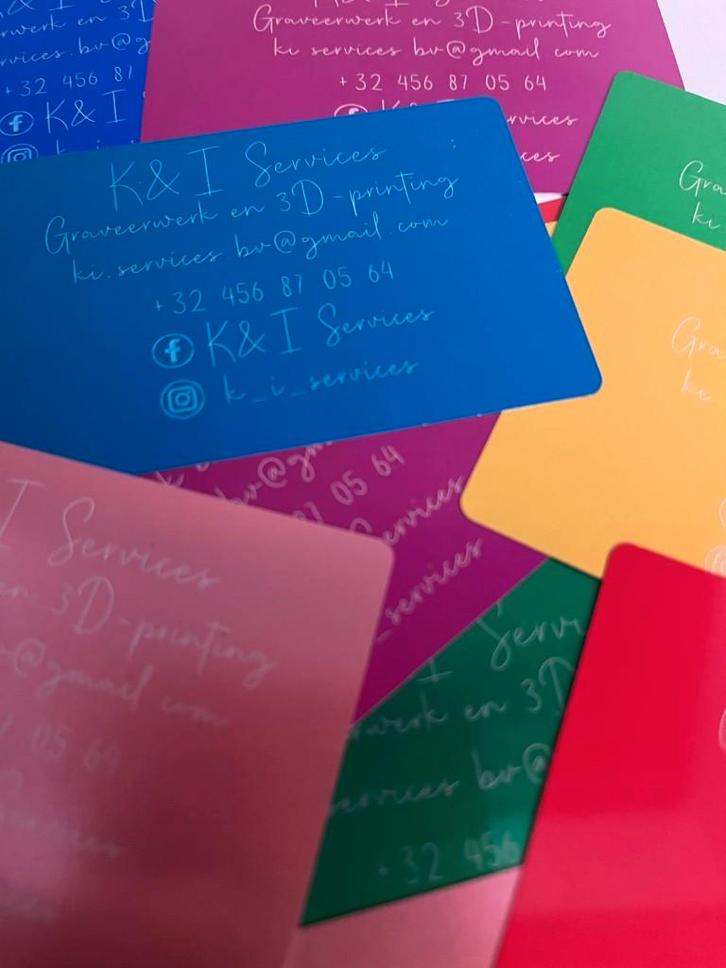 K & I
werk en 3D
rvices.bv@g
+32 456 87
K & I
Graveerwerk en 3D-printing
ki.services.bv@gmail.com
+32 456 87 05 64
rvices
ces
K & I Services
Graveerwerk en 3D-printing
ki.services.bv@gmail.com
+32 456 87 05 64
K & I Services
k_i_services
Gra
ki
Gra
ki
bv@gm
05 64
ervices
_services
I Services
en 3D-printing
@gmail.com
05 64
I Servi
rwerk en 3D
services.bv@
+32 456